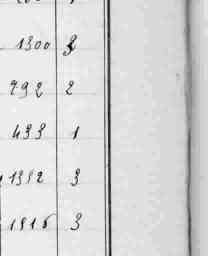 1300 3
792 2
433 1
1312 3
1916 3